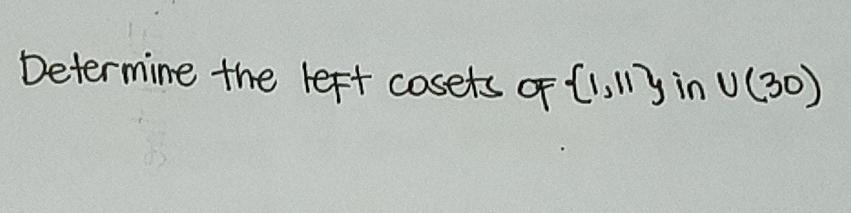 Determine the left cosets of {1,11} in U(30)